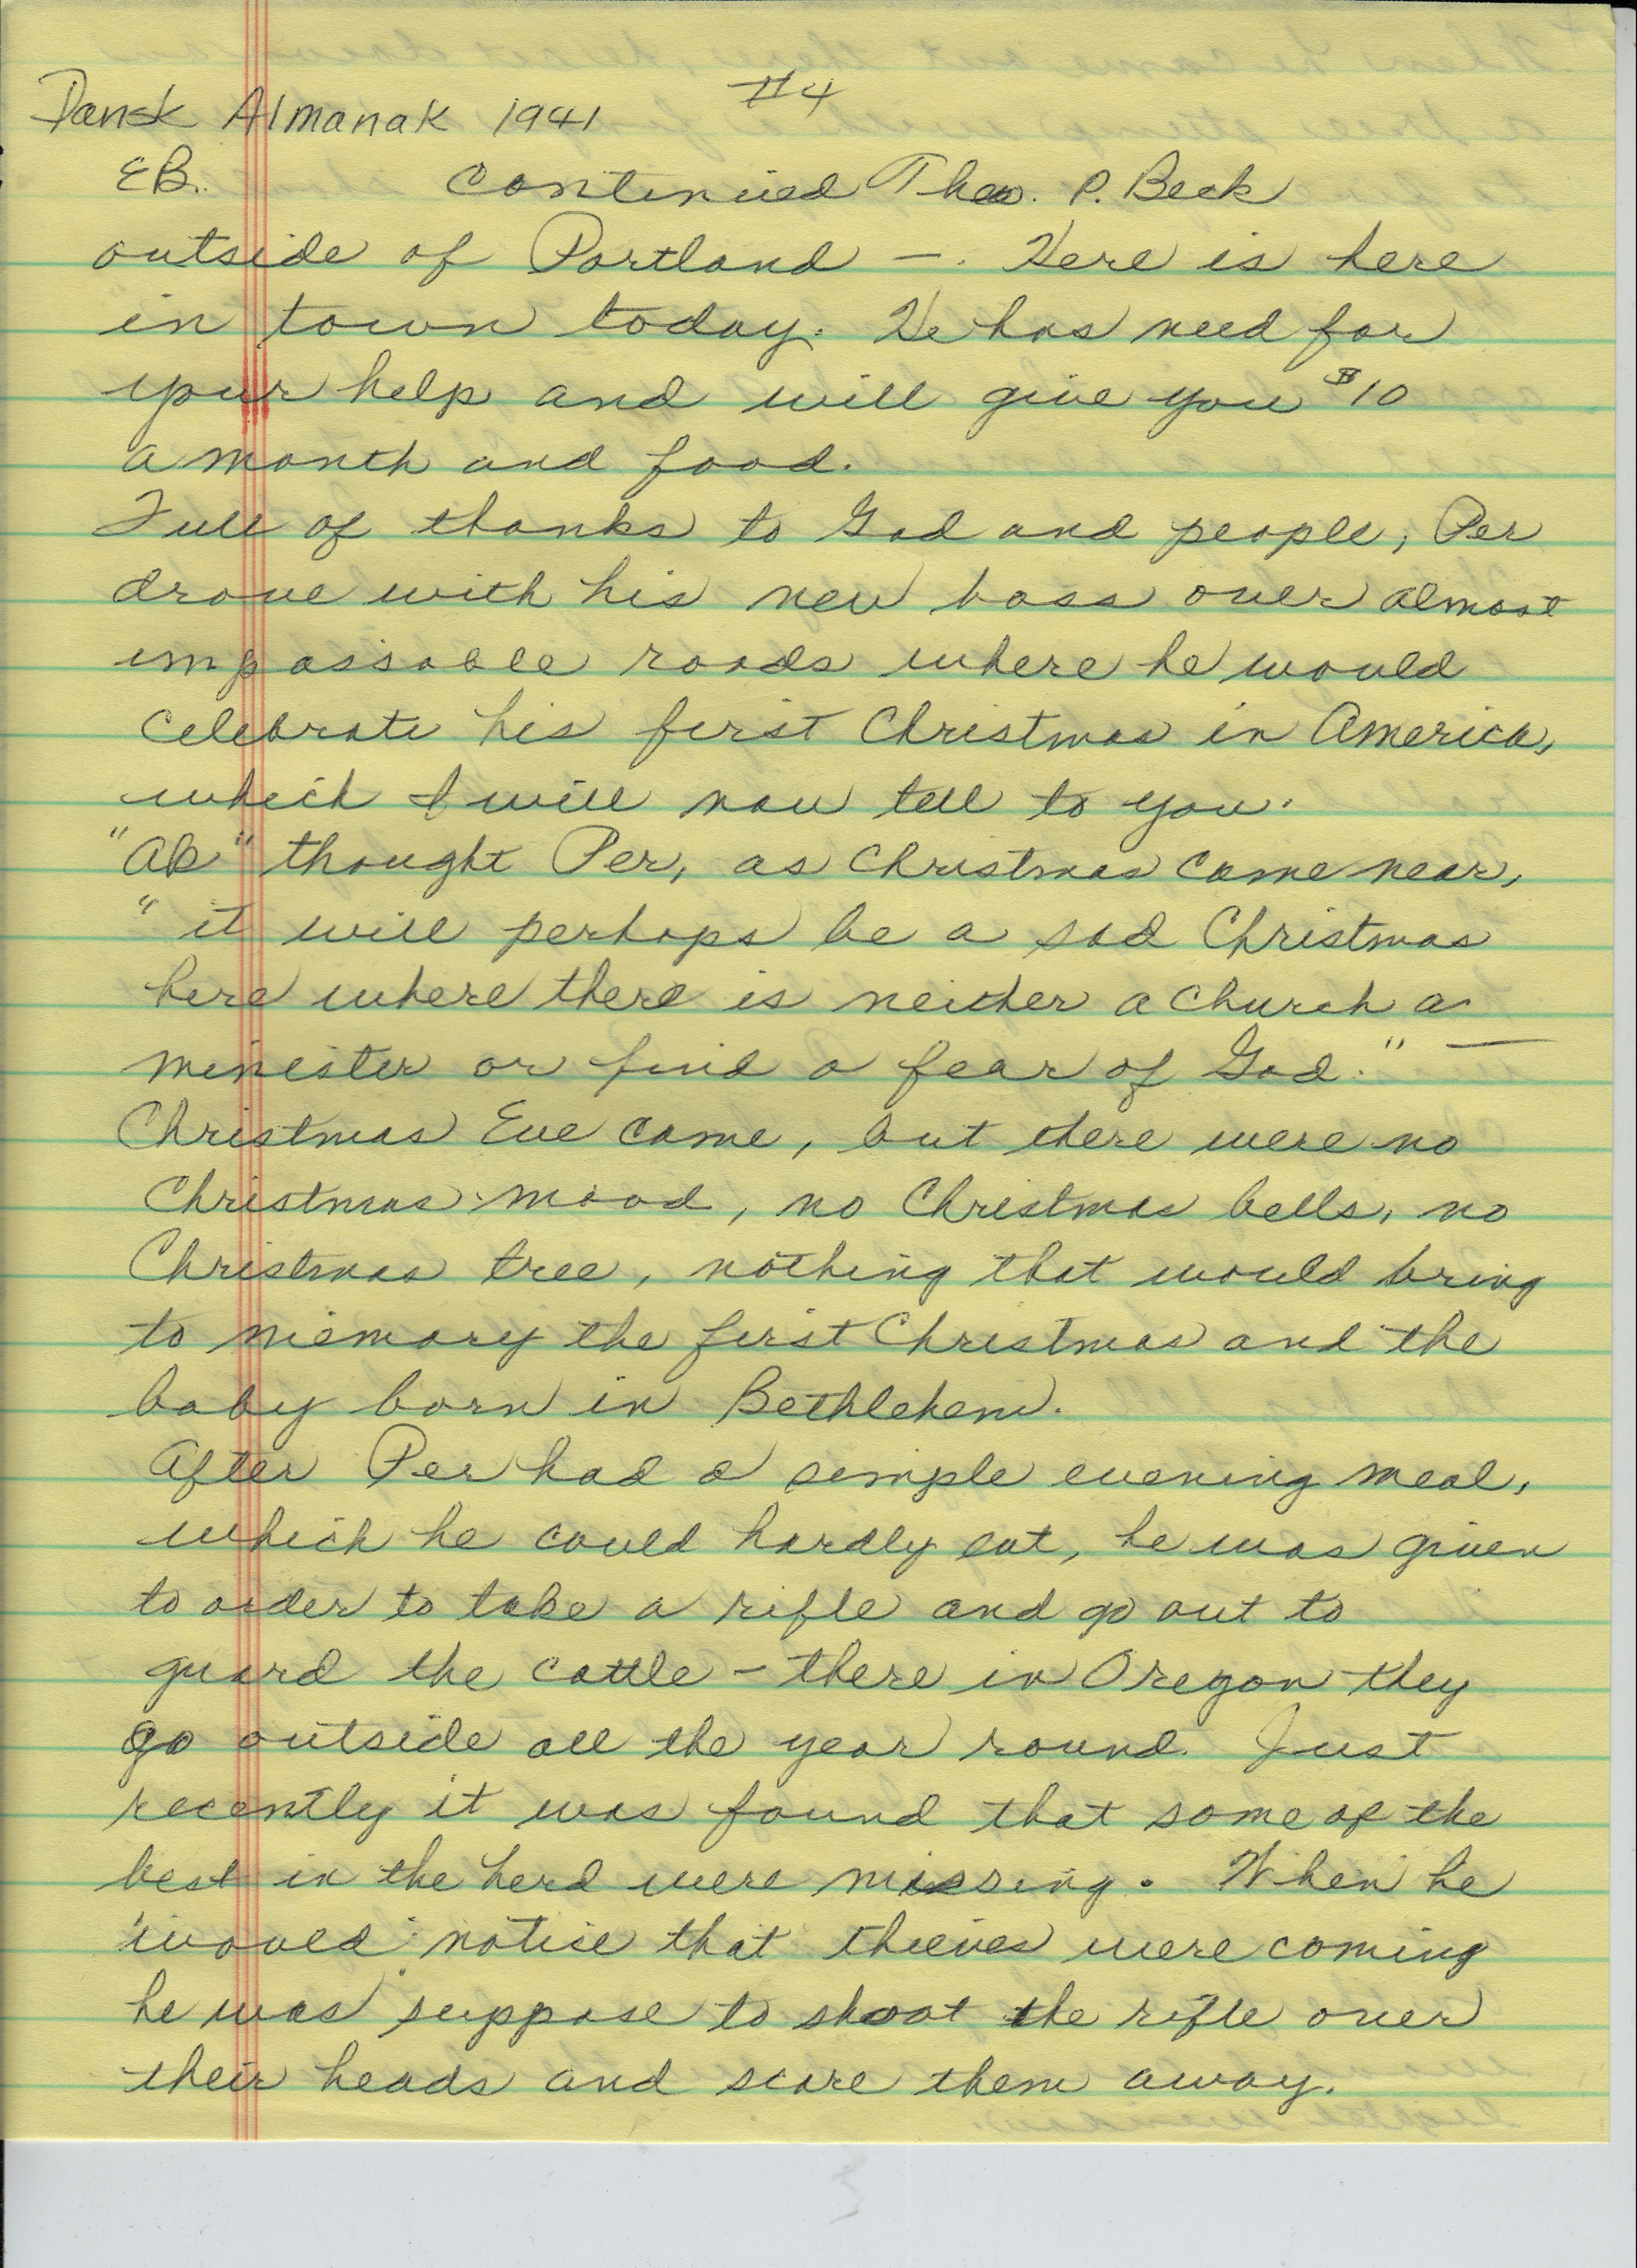 Dansk Almanak 1941 #4
EB. Continued Theo. P. Beck
outside of Portland —. Here is here
in town today. He has need for
your help and will give you $10
a month and food.
Full of thanks to God and people, Per
drove with his new boss over almost
impassable roads where he would
celebrate his first Christmas in America,
which I will now tell to you.
"Ak" thought Per, as Christmas came near,
"it will perhaps be a sad Christmas
here where there is neither a church a
minester or find a fear of God." —
Christmas Eve came, but there were no
Christmas mood, no Christmas bells, no
Christmas tree, nothing that would bring
to memory the first Christmas and the
baby born in Bethlehem.
After Per had a simple evening meal,
which he could hardly eat, he was given
to order to take a rifle and go out to
guard the cattle – there in Oregon they
go outside all the year round. Just
recently it was found that some of the
best in the herd were missing. When he
would notice that thieves were coming
he was suppose to shoot the rifle over
their heads and scare them away.